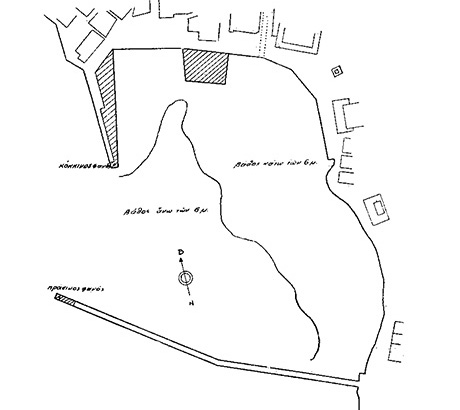 κόκκινος φανός
Βάθος κάτω τῶν 6 μ.
Βάθος ἄνω τῶν 6 μ.
Β
Ν
πράσινος φανός